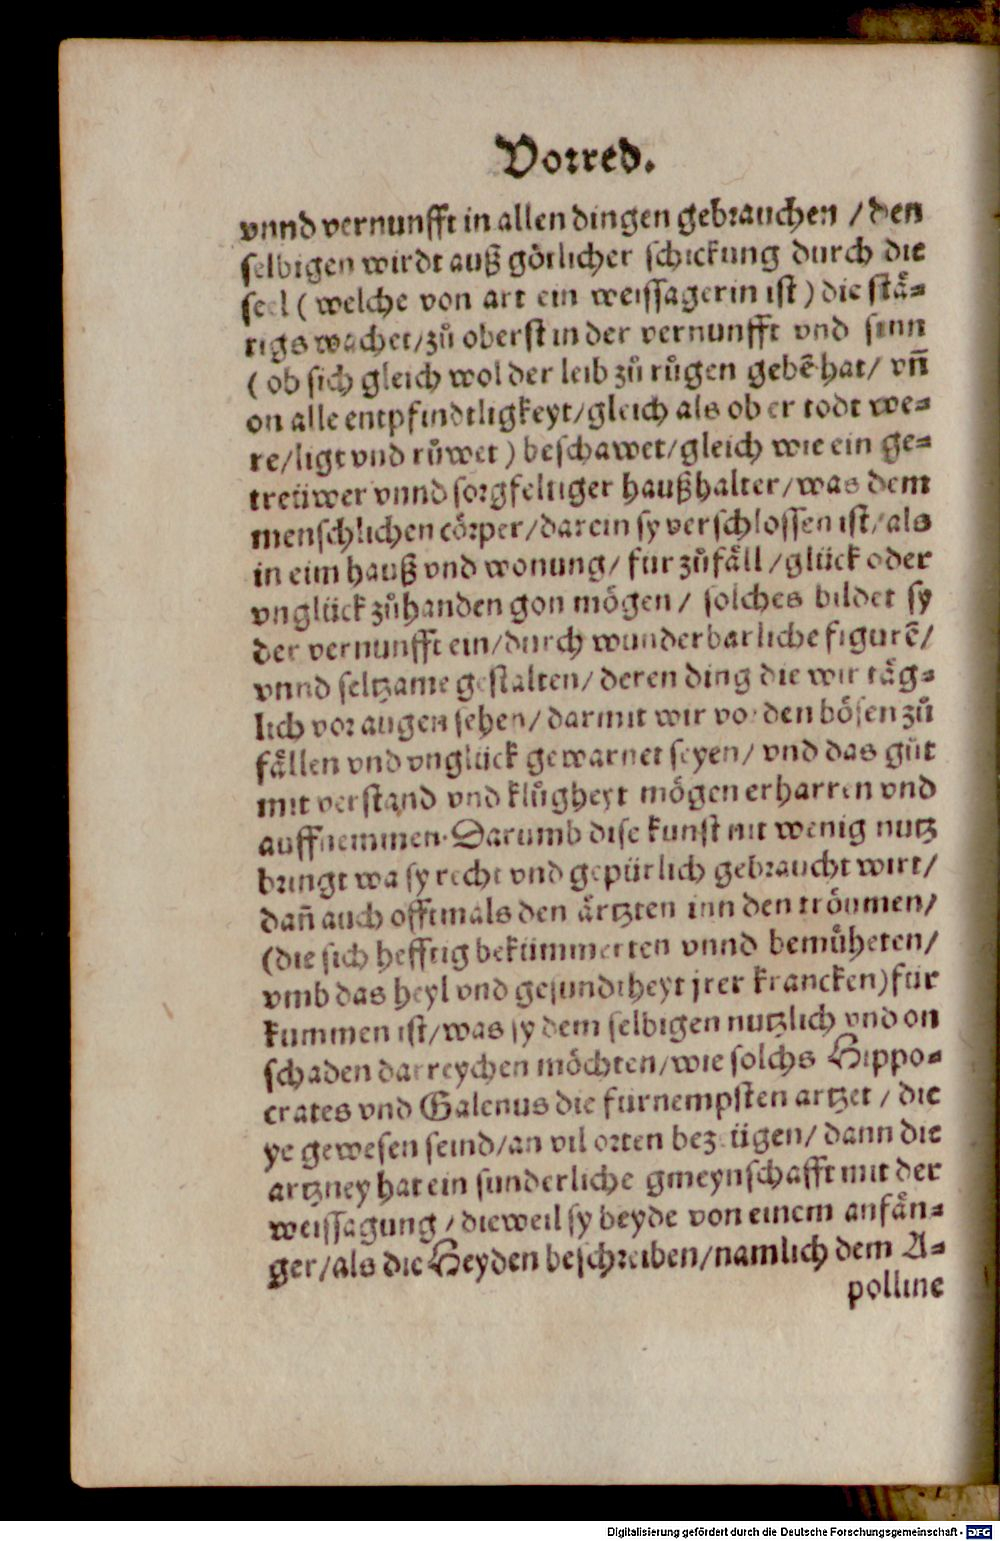 Vorred.
vnnd vernunfft in allen dingen gebrauchen / den
selbigen wirdt auß götlicher schickung durch die
seel ( welche von art ein weissagerin ist ) die stä-
tigs wachet/zů oberst in der vernunfft vnd sinn
( ob sich gleich wol der leib zů růgen gebẽ hat/ vñ
on alle entpfindtligkeyt/gleich als ob er todt we-
re/ligt vnd růwet ) beschawet/gleich wie ein ge-
treüwer vnnd sorgfeltiger haußhalter/was dem
menschlichen cörper/darein sy verschlossen ist/als
in eim hauß vnd wonung/ für zůfäll /glück oder
vnglück zůhanden gon mögen / solches bildet sy
der vernunfft ein/durch wunderbarliche figurẽ/
vnnd seltzame gestalten/ deren ding die wir täg-
lich vor augen sehen/ darmit wir vor den bösen zů
fällen vnd vnglück gewarnet seyen/ vnd das gůt
mit verstand vnd klůgheyt mögen erharren vnd
auffnemmen. Darumb dise kunst nit wenig nutz
bringt wa sy recht vnd gepürlich gebraucht wirt/
dañ auch offtmals den ärtzten inn den tröumen/
(die sich hefftig bekümmerten vnnd bemůheten/
vmb das heyl vnd gesundtheyt jrer krancken) für
kummen ist/was sy dem selbigen nutzlich vnd on
schaden darreychen möchten/wie solchs Hippo-
crates vnd Galenus die fürnempsten artzet / die
ye gewesen seind/an vil orten bezeügen/ dann die
artzney hat ein sunderliche gmeynschafft mit der
weissagung / dieweil sy beyde von einem anfän-
ger/als die Heyden beschreiben/namlich dem A-
polline
Digitalisierung gefördert durch die Deutsche Forschungsgemeinschaft - DFG